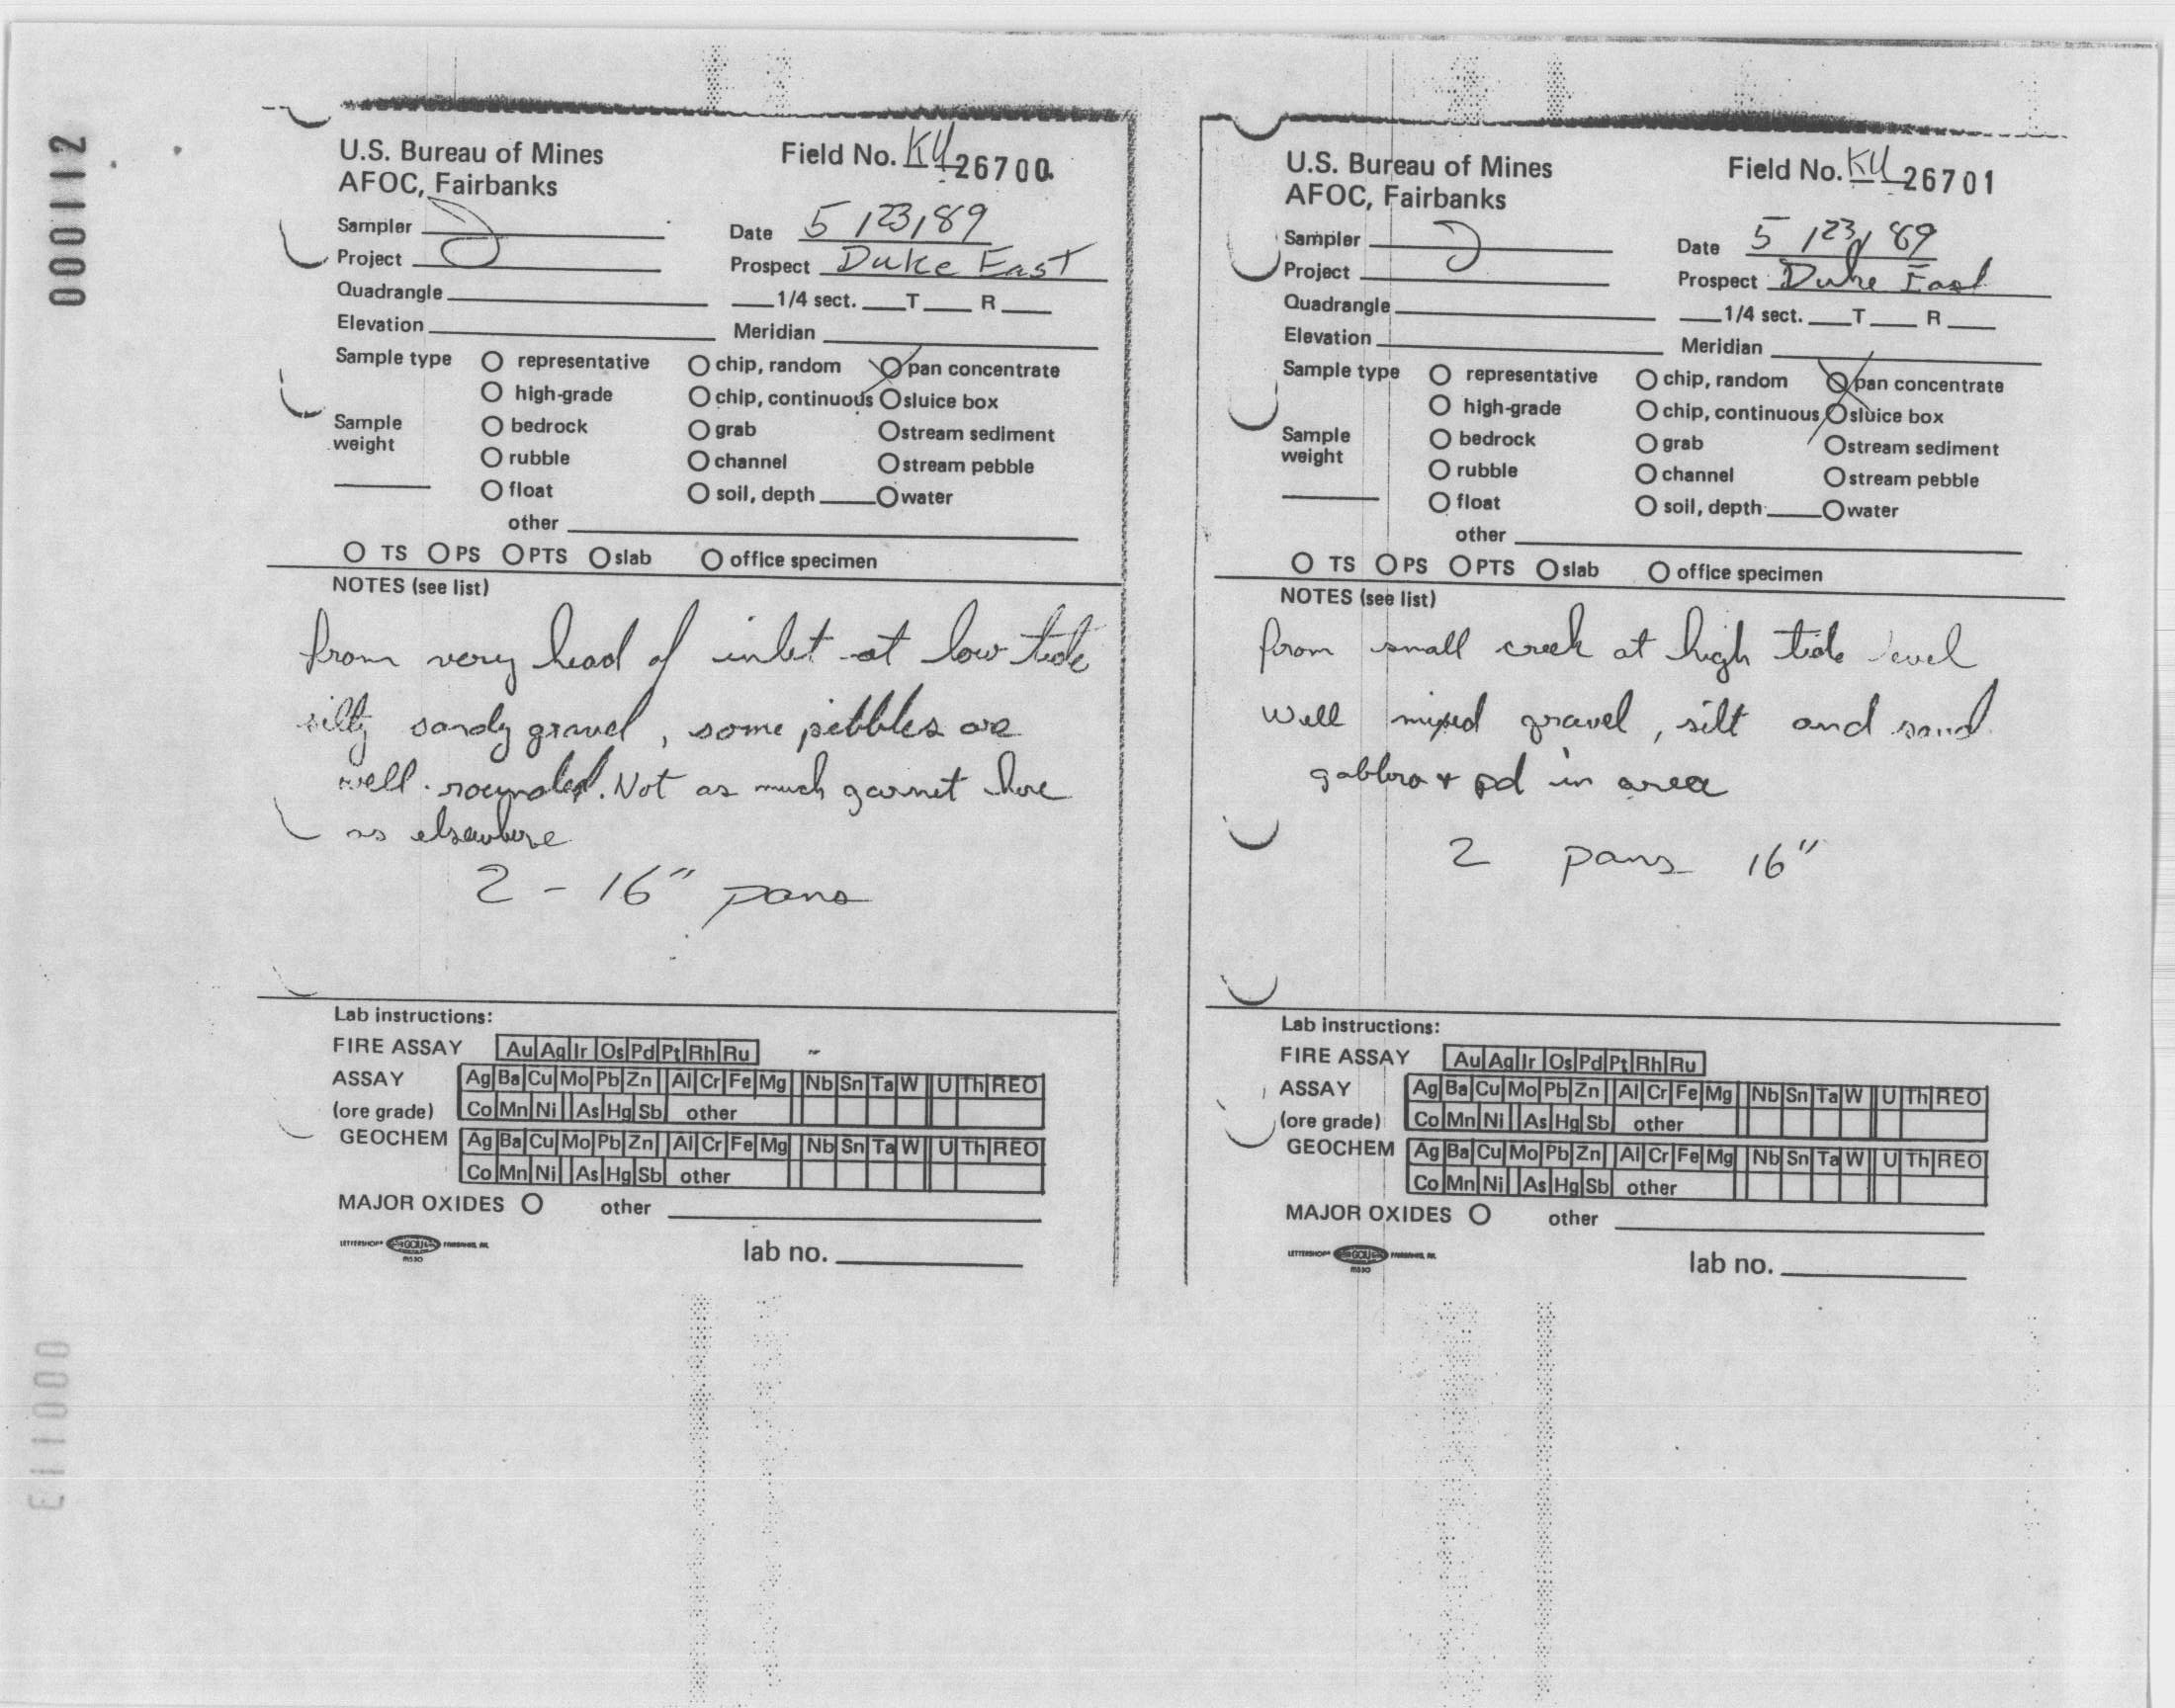 000112
U.S. Bureau of Mines
AFOC, Fairbanks
Field No. KU 26700
Sampler
Date 5/23/89
Project
Prospect Duke East
Quadrangle
1/4 sect. T R
Elevation
Meridian
Sample type O representative O chip, random O pan concentrate
O high-grade O chip, continuous O sluice box
Sample weight
O bedrock O grab O stream sediment
O rubble O channel O stream pebble
O float O soil, depth O water
other
O TS O PS O PTS O slab O office specimen
NOTES (see list)
from very head of inlet at low tide
silty sandy gravel, some pebbles are
well rounded. Not as much garnet here
as elsewhere
2 - 16" pans
Lab instructions:
FIRE ASSAY Au Ag Ir Os Pd Pt Rh Ru
ASSAY Ag Ba Cu Mo Pb Zn Al Cr Fe Mg Nb Sn Ta W U Th REO
(ore grade) Co Mn Ni As Hg Sb other
GEOCHEM Ag Ba Cu Mo Pb Zn Al Cr Fe Mg Nb Sn Ta W U Th REO
Co Mn Ni As Hg Sb other
MAJOR OXIDES O other
LETTERSHOP
lab no.
U.S. Bureau of Mines
AFOC, Fairbanks
Field No. KU 26701
Sampler
Date 5/23/89
Project
Prospect Duke East
Quadrangle
1/4 sect. T R
Elevation
Meridian
Sample type O representative O chip, random O pan concentrate
O high-grade O chip, continuous O sluice box
Sample weight
O bedrock O grab O stream sediment
O rubble O channel O stream pebble
O float O soil, depth O water
other
O TS O PS O PTS O slab O office specimen
NOTES (see list)
from small creek at high tide level
well mixed gravel, silt and sand
gabbro + pd in area
2 pans 16"
Lab instructions:
FIRE ASSAY Au Ag Ir Os Pd Pt Rh Ru
ASSAY Ag Ba Cu Mo Pb Zn Al Cr Fe Mg Nb Sn Ta W U Th REO
(ore grade) Co Mn Ni As Hg Sb other
GEOCHEM Ag Ba Cu Mo Pb Zn Al Cr Fe Mg Nb Sn Ta W U Th REO
Co Mn Ni As Hg Sb other
MAJOR OXIDES O other
LETTERSHOP
lab no.
000113